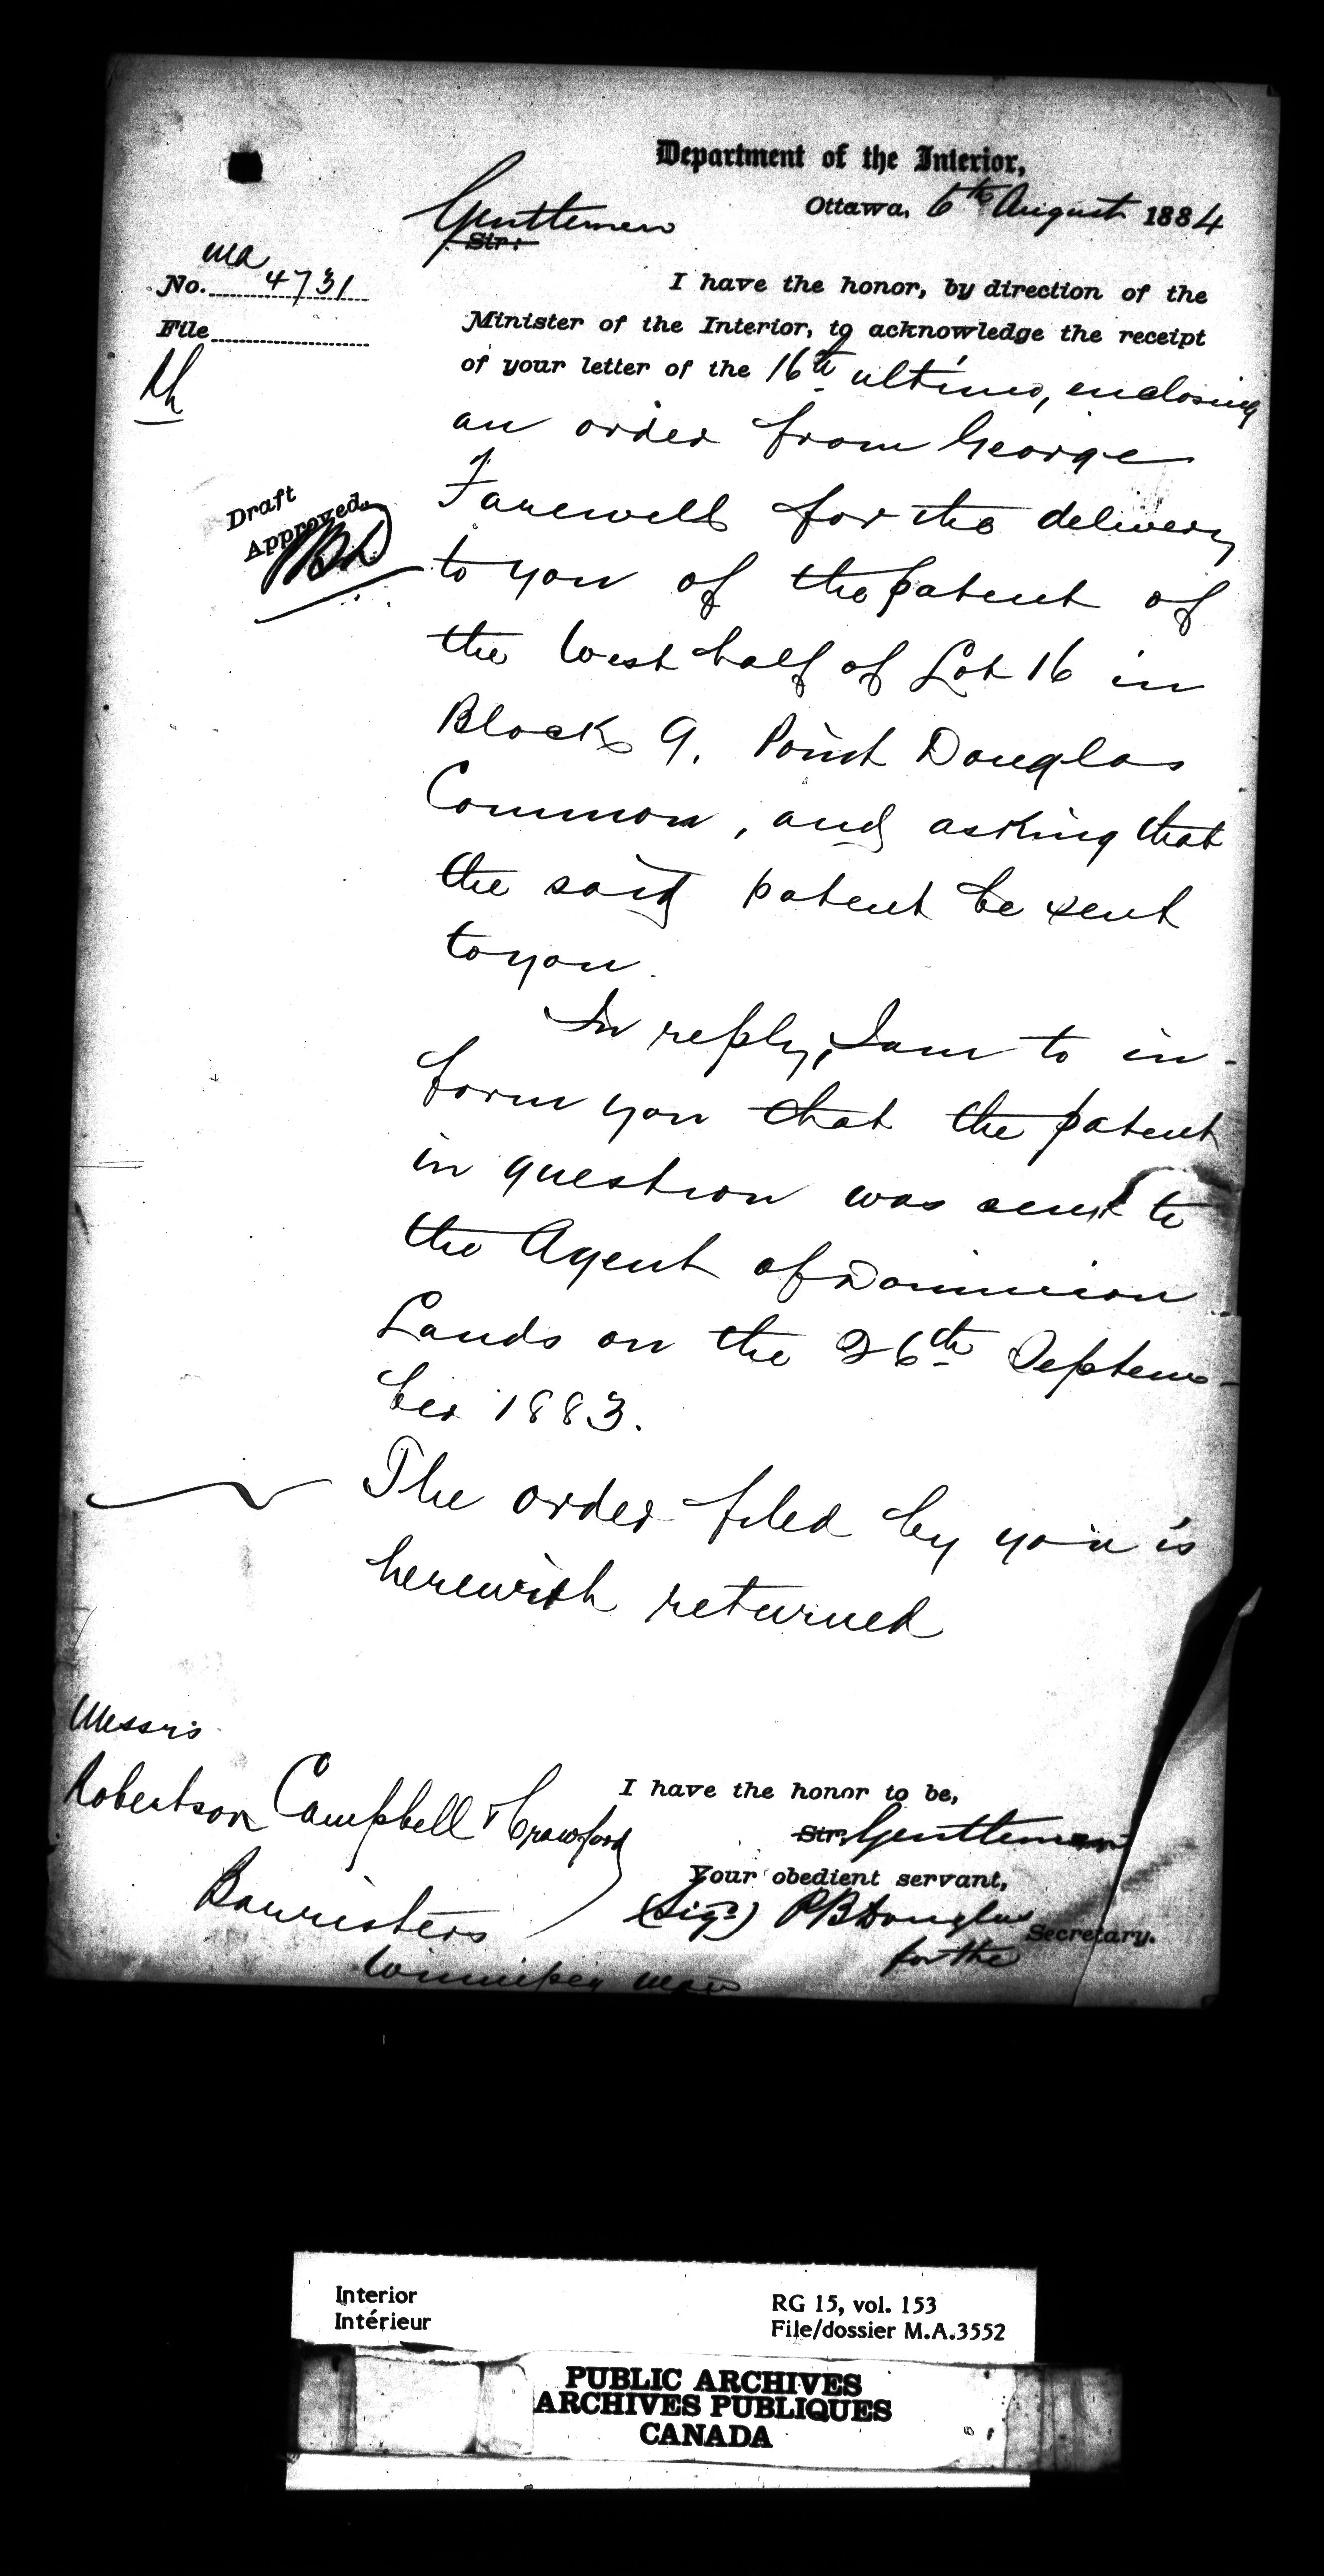 Department of the Interior,
Ottawa, 6th August 1884
Gentlemen
Sir:
MA
No. 4731
File
Draft
Approved.
PBD
I have the honor, by direction of the
Minister of the Interior, to acknowledge the receipt
of your letter of the 16th ultimo, enclosing
an order from George
Farewell for the delivery
to you of the patent of
the West half of Lot 16 in
Block 9. Point Douglas
Common, and asking that
the said patent be sent
to you.
In reply, I am to in-
form you that the patent
in question was sent to
the Agent of Dominion
Lands on the 26th Septem-
ber 1883.
The order filed by you is
herewith returned
Messrs
Robertson Campbell & Crawford
Barristers
Winnipeg Man
I have the honor to be,
Sir, Gentlemen
Your obedient servant,
(Sigd) PB Douglas
Secretary.
for the
Interior
Intérieur
RG 15, vol. 153
File/dossier M.A.3552
PUBLIC ARCHIVES
ARCHIVES PUBLIQUES
CANADA